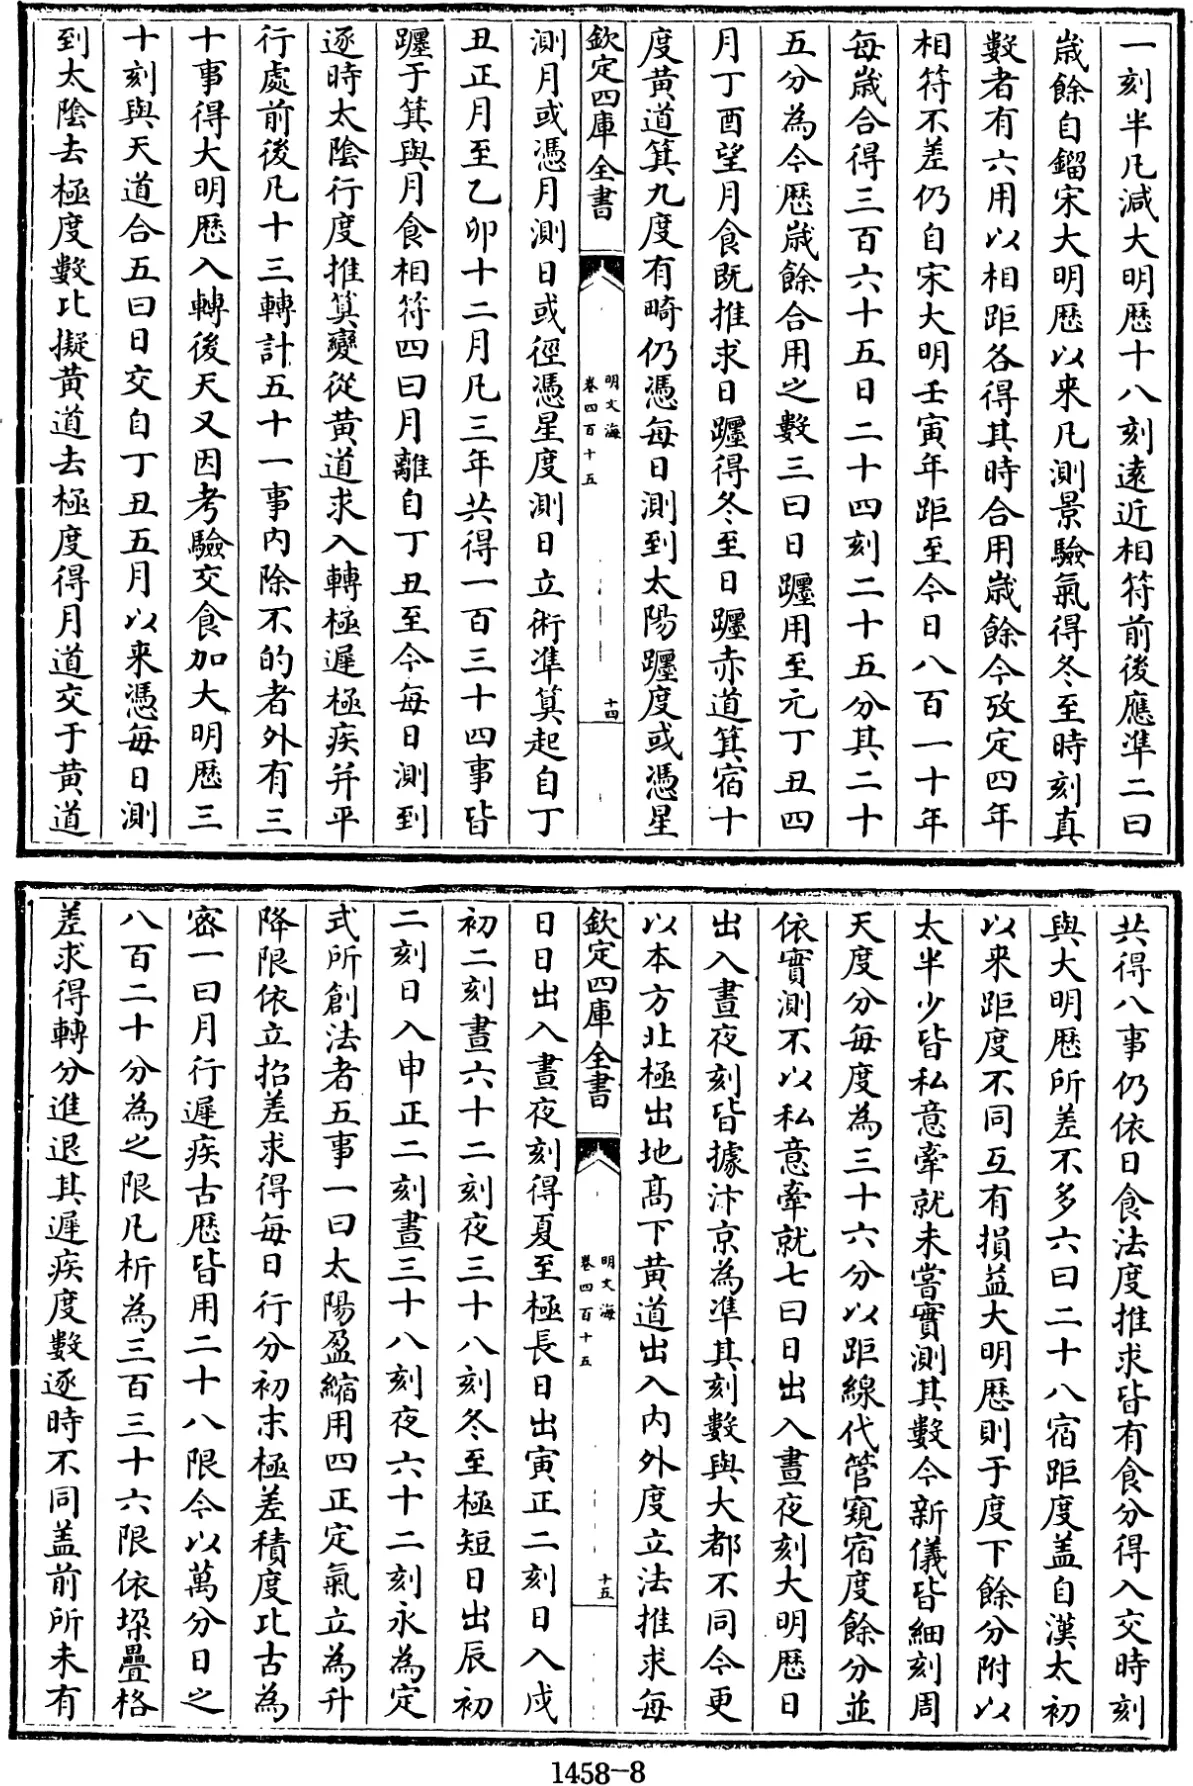 一刻半凡減大明歴十八刻逺近相符前後應準二曰
歳餘自鎦宋大明歴以来凡測景驗氣得冬至時刻真
數者有六用以相距各得其時合用歳餘今攷定四年
相符不差仍自宋大明壬寅年距至今日八百一十年
每歳合得三百六十五日二十四刻二十五分其二十
五分為今歴歳餘合用之數三曰日躔用至元丁丑四
月丁酉望月食既推求日躔得冬至日躔赤道箕宿十
度黄道箕九度有畸仍憑每日測到太陽躔度或憑星
欽定四庫全書
明文海
卷四百十五
十四
測月或憑月測日或徑憑星度測日立術準算起自丁
丑正月至乙夘十二月凡三年共得一百三十四事皆
躔于箕與月食相符四曰月離自丁丑至今每日測到
逐時太陰行度推算變從黄道求入轉極遲極疾并平
行處前後凡十三轉計五十一事内除不的者外有三
十事得大明歴入轉後天又因考驗交食加大明歴三
十刻與天道合五曰日交自丁丑五月以来憑每日測
到太陰去極度數比擬黄道去極度得月道交于黄道
共得八事仍依日食法度推求皆有食分得入交時刻
與大明歴所差不多六曰二十八宿距度盖自漢太初
以来距度不同互有損益大明歴則于度下餘分附以
太半少皆私意牽就未嘗實測其數今新儀皆細刻周
天度分每度為三十六分以距線代管窺宿度餘分並
依實測不以私意牽就七曰日出入晝夜刻大明歴日
出入晝夜刻皆據汴京為準其刻數與大都不同今更
以本方北極出地髙下黄道出入内外度立法推求每
欽定四庫全書
明文海
卷四百十五
十五
日日出入晝夜刻得夏至極長日出寅正二刻日入戌
初二刻晝六十二刻夜三十八刻冬至極短日出辰初
二刻日入申正二刻晝三十八刻夜六十二刻永為定
式所創法者五事一曰太陽盈縮用四正定氣立為升
降限依立招差求得每日行分初末極差積度比古為
密一曰月行遲疾古歴皆用二十八限今以萬分日之
八百二十分為之限凡析為三百三十六限依垜疊格
差求得轉分進退其遲疾度數逐時不同盖前所未有
1458-8